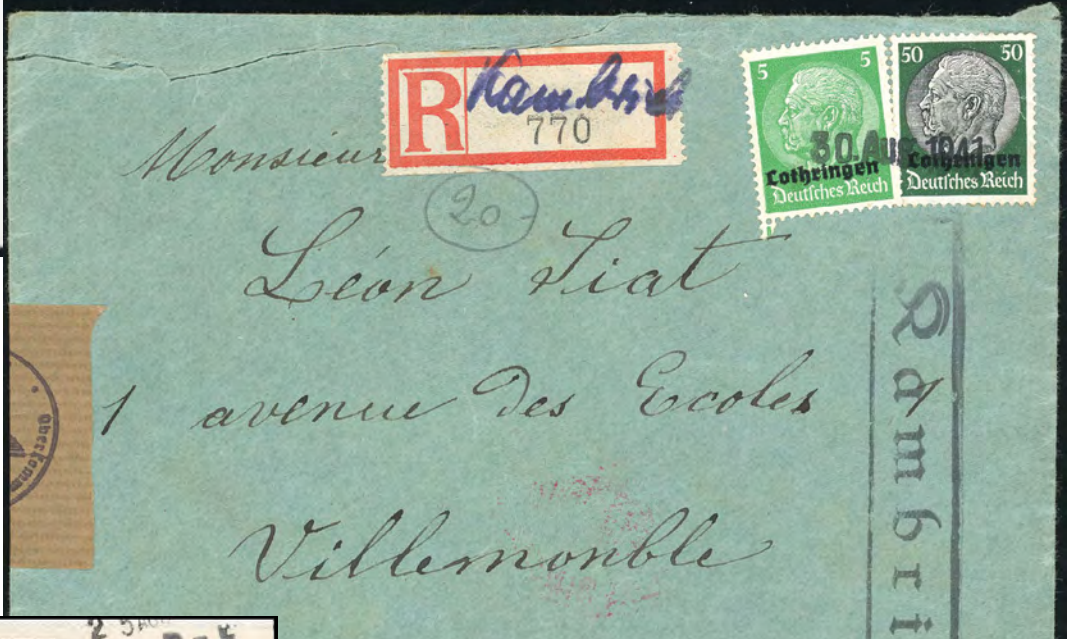 R Kambrich
770
5 5
50 50
30 Aug 1941
Lothringen
Deutsches Reich
Lothringen
Deutsches Reich
Monsieur
20-
Léon Fiat
1 avenue des Ecoles 1
Villemonble
Kambri
Oberkomm